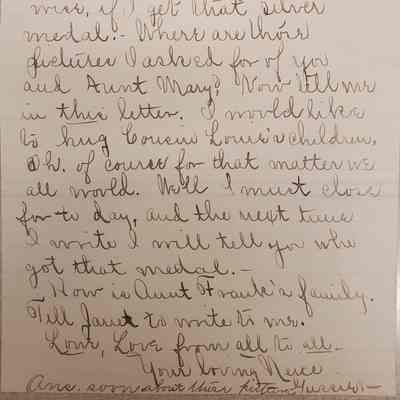 wise, if I get that silver
medal.- Where are their
pictures I asked for of you
and Aunt Mary? Now tell me
in this letter. I would like
to hug Cousin Louis's children,
Oh. of course for that matter we
all would. Well I must close
for to day, and the next time
I write I will tell you who
got that medal.-
How is Aunt Frank's family.
Tell Janet to write to me.
Love, Love from all to all.-
Your loving Niece
Ans. soon about their